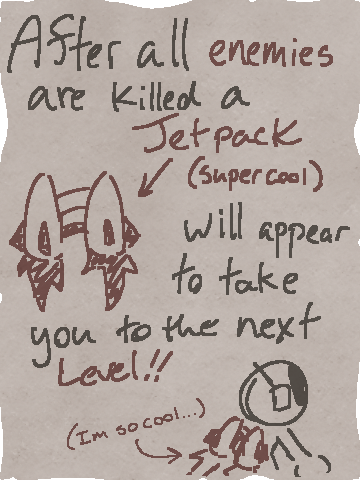 After all enemies
are killed a
Jetpack
(super cool)
will appear
to take
you to the next
Level!!
(Im so cool...)